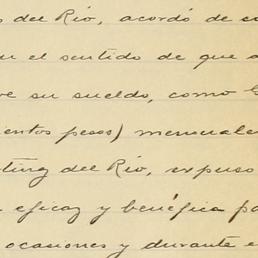 del Río, acordó de
el sentido de que
su sueldo, como
pesos) mensuales
del Río, expuso
eficaz y benéfica
ocasiones y durante